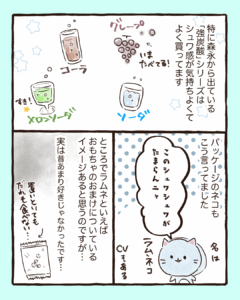 特に森永から出ている
「強炭酸」シリーズは
シュワ感が気持ちよくて
よく買ってます
グレープ
いま
たべてる!
コーラ
すき!
メロンソーダ
ソーダ
パッケージのネコも
こう言ってました
このシュワシュワが
たまらんニャ
名は
ラムネコ
CVもある
ところでラムネといえば
おもちゃのおまけについている
イメージあると思うのですが…
実は昔あまり好きじゃなかったです…
置いといても
だれも食べない…